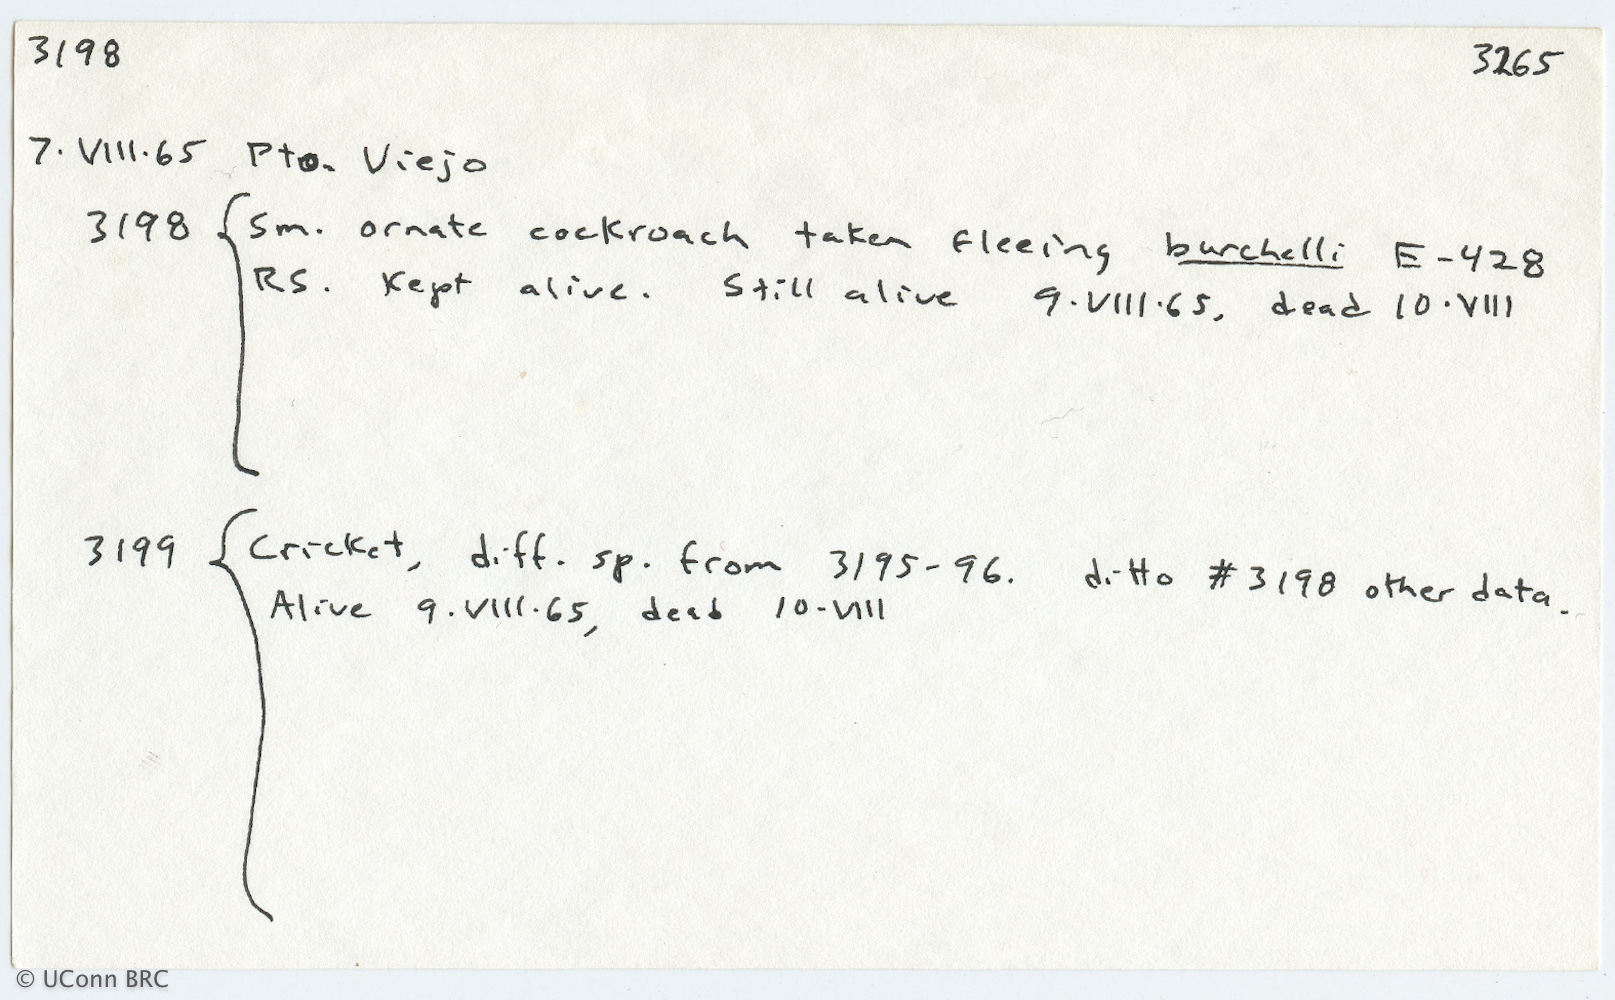 3198 3265
7.VIII.65 Pto. Viejo
3198 { Sm. ornate cockroach taken fleeing burchelli E-428
RS. Kept alive. Still alive 9.VIII.65, dead 10.VIII
3199 { Cricket, diff. sp. from 3195-96. ditto #3198 other data.
Alive 9.VIII.65, dead 10-VIII
© UConn BRC